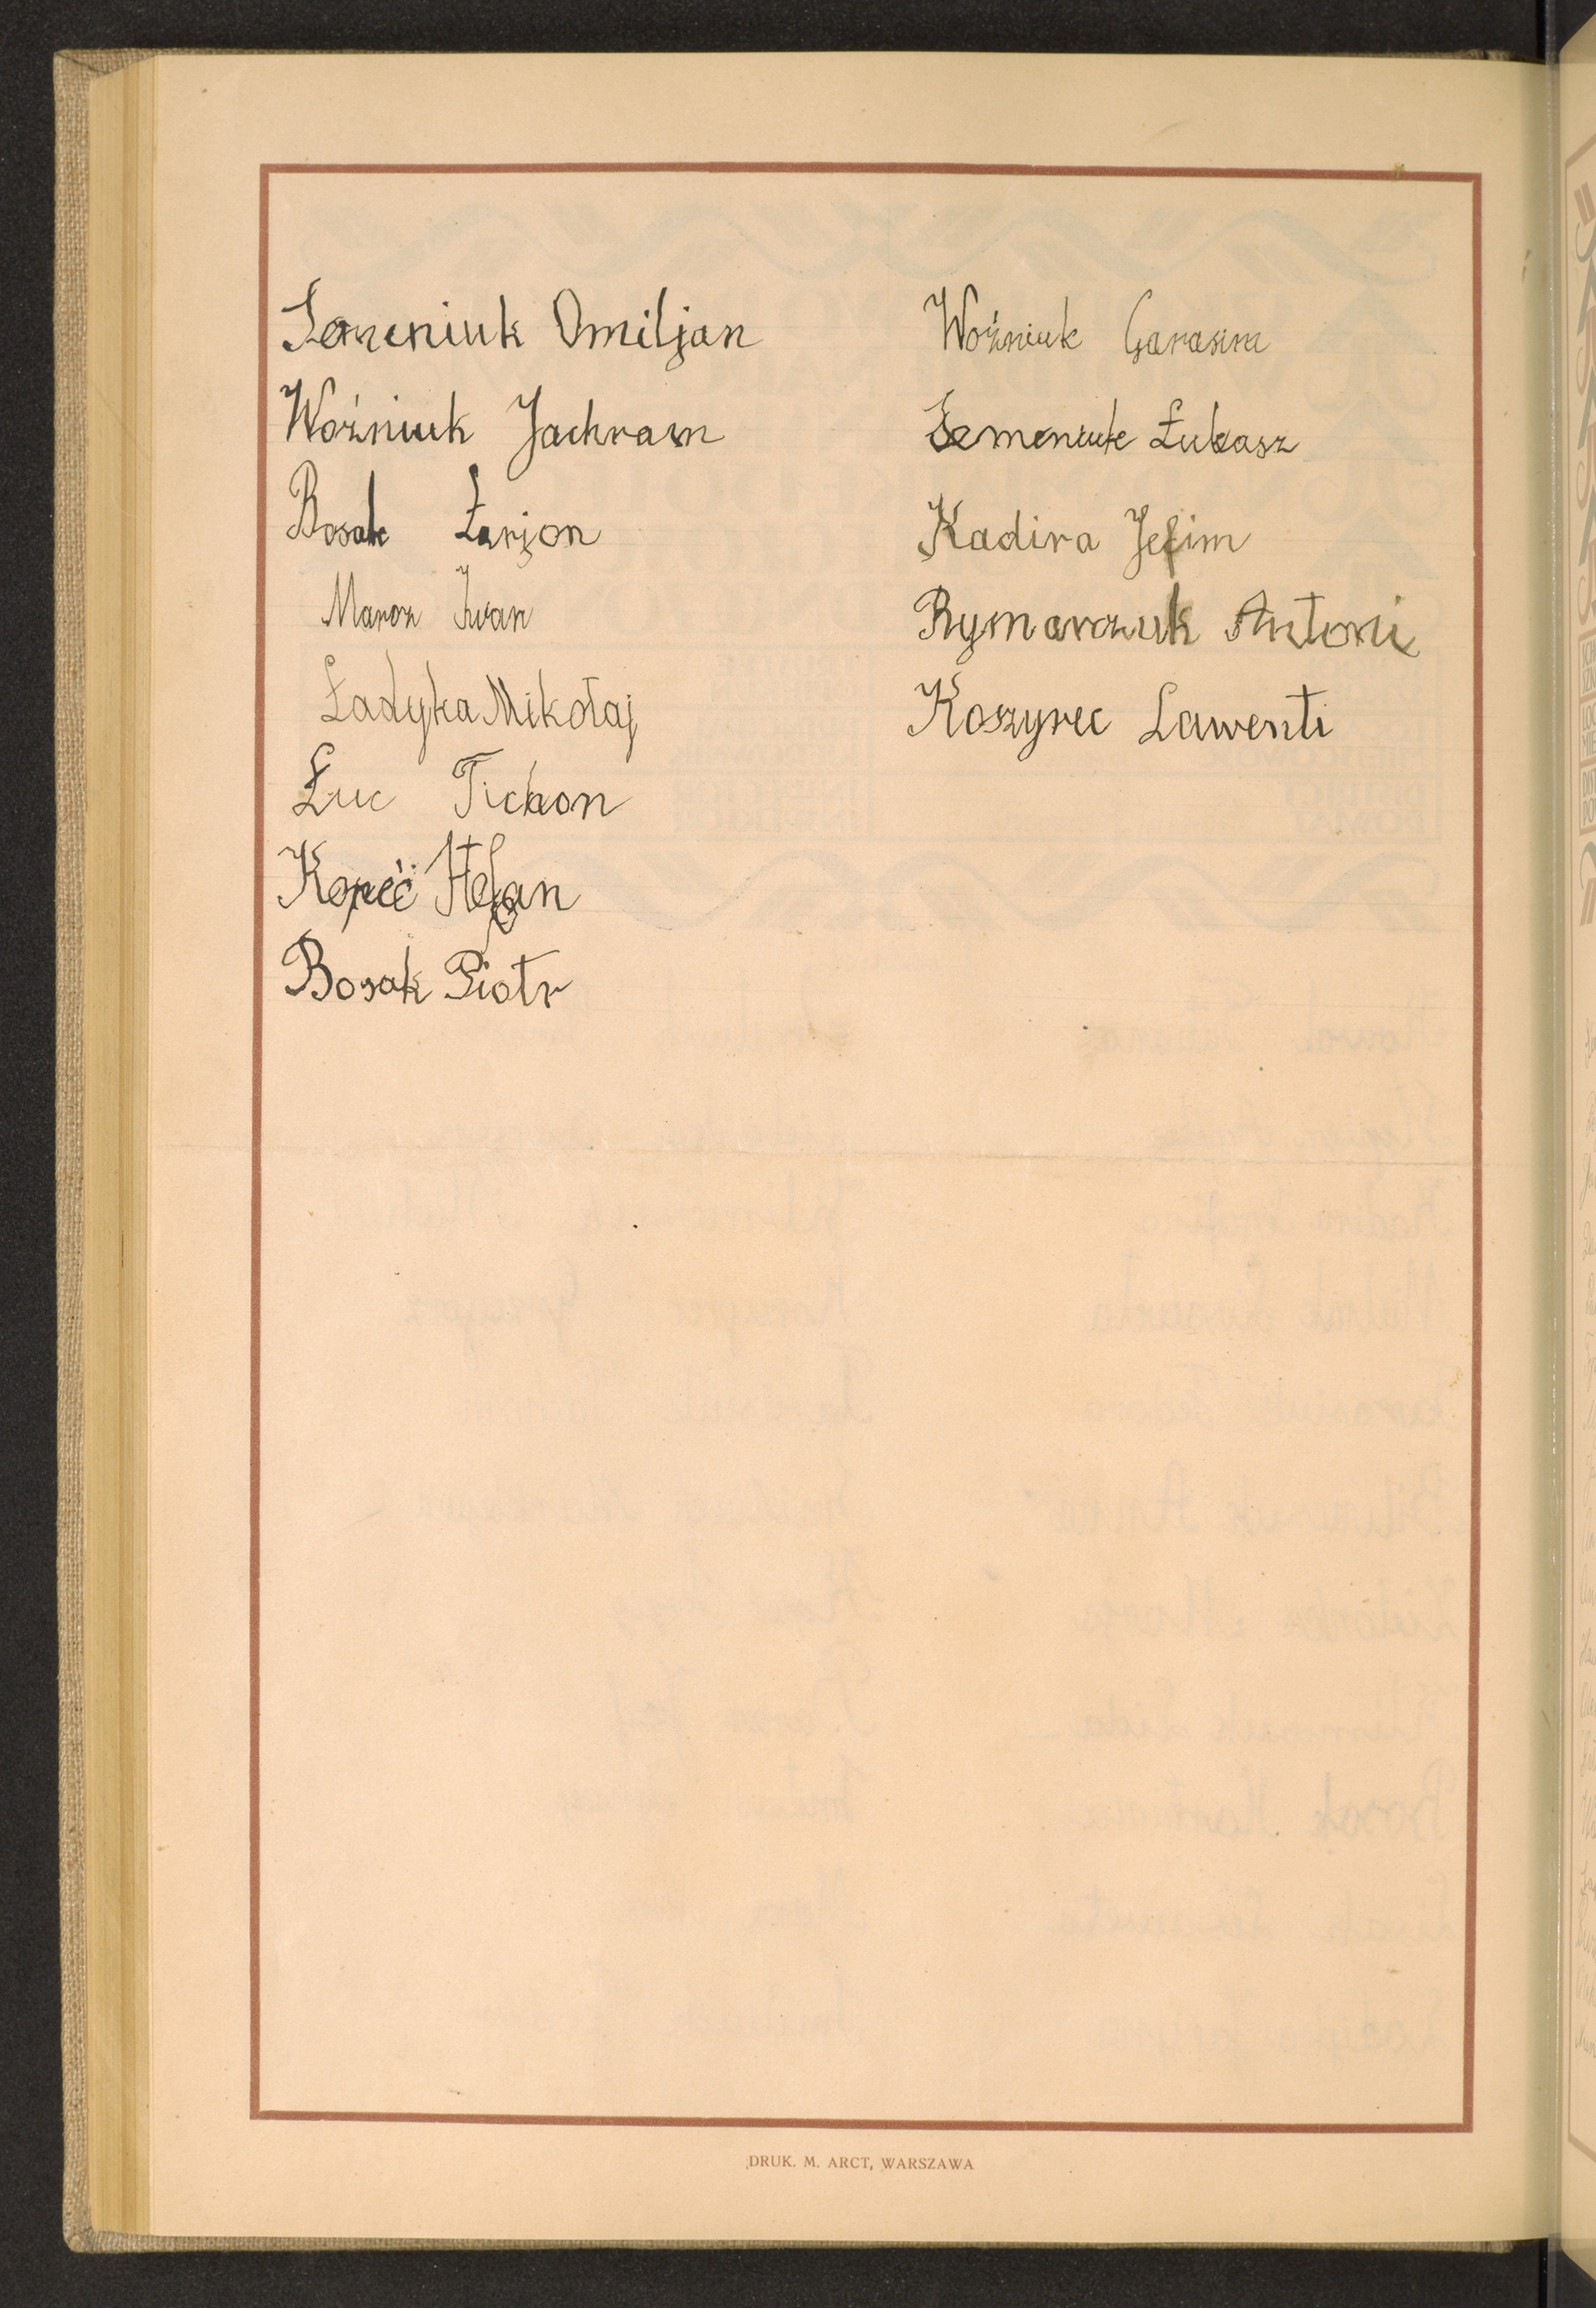 Semeniuk Omiljan
Woźniuk Jachram
Bosak Łarjon
Maroz Iwan
Ładyka Mikołaj
Łuc Tichon
Kopeć
Bosak Piotr
Woźniuk Garasim
Semeniuk Łukasz
Kadira Jefim
Rymarczuk Antoni
Koszyrec Lawenti
DRUK. M. ARCT, WARSZAWA